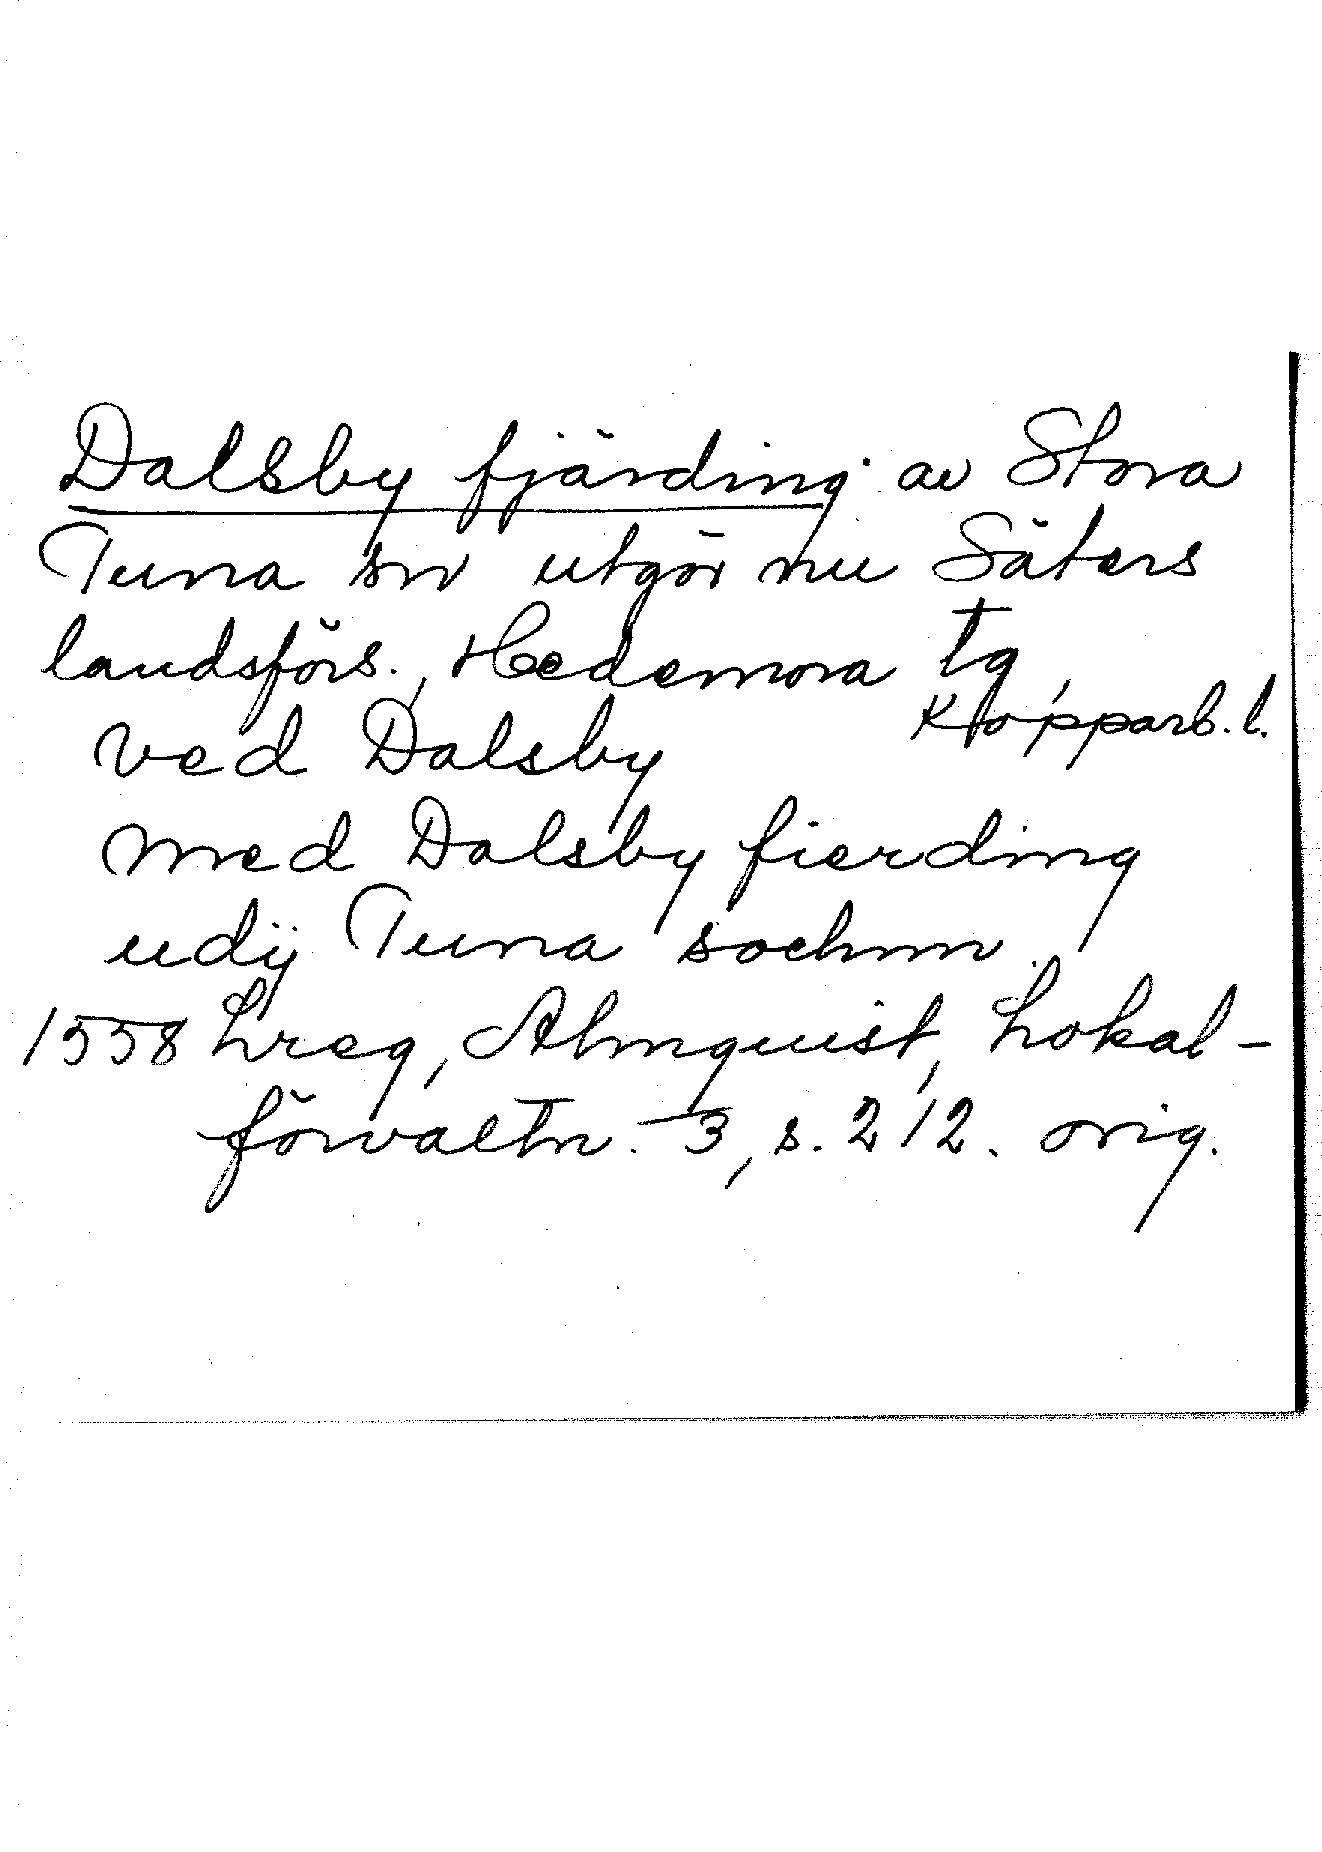 Dalsby fjärding av Stora
Tuna sn utgör nu Säters
landsförs., Hedemora tg,
Kopparb. l.
ved Dalsby
med Dalsby fierding
udij Tuna sochnn
1558 Lreg, Almquist, Lokal-
förvaltn. 3, s. 212. orig.